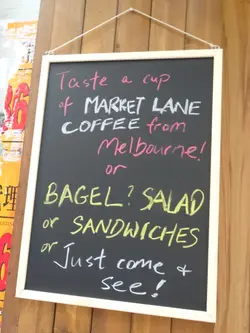 Taste a cup
of MARKET LANE
COFFEE from
Melbourne!
or
BAGEL? SALAD
or SANDWICHES
or Just come &
see!